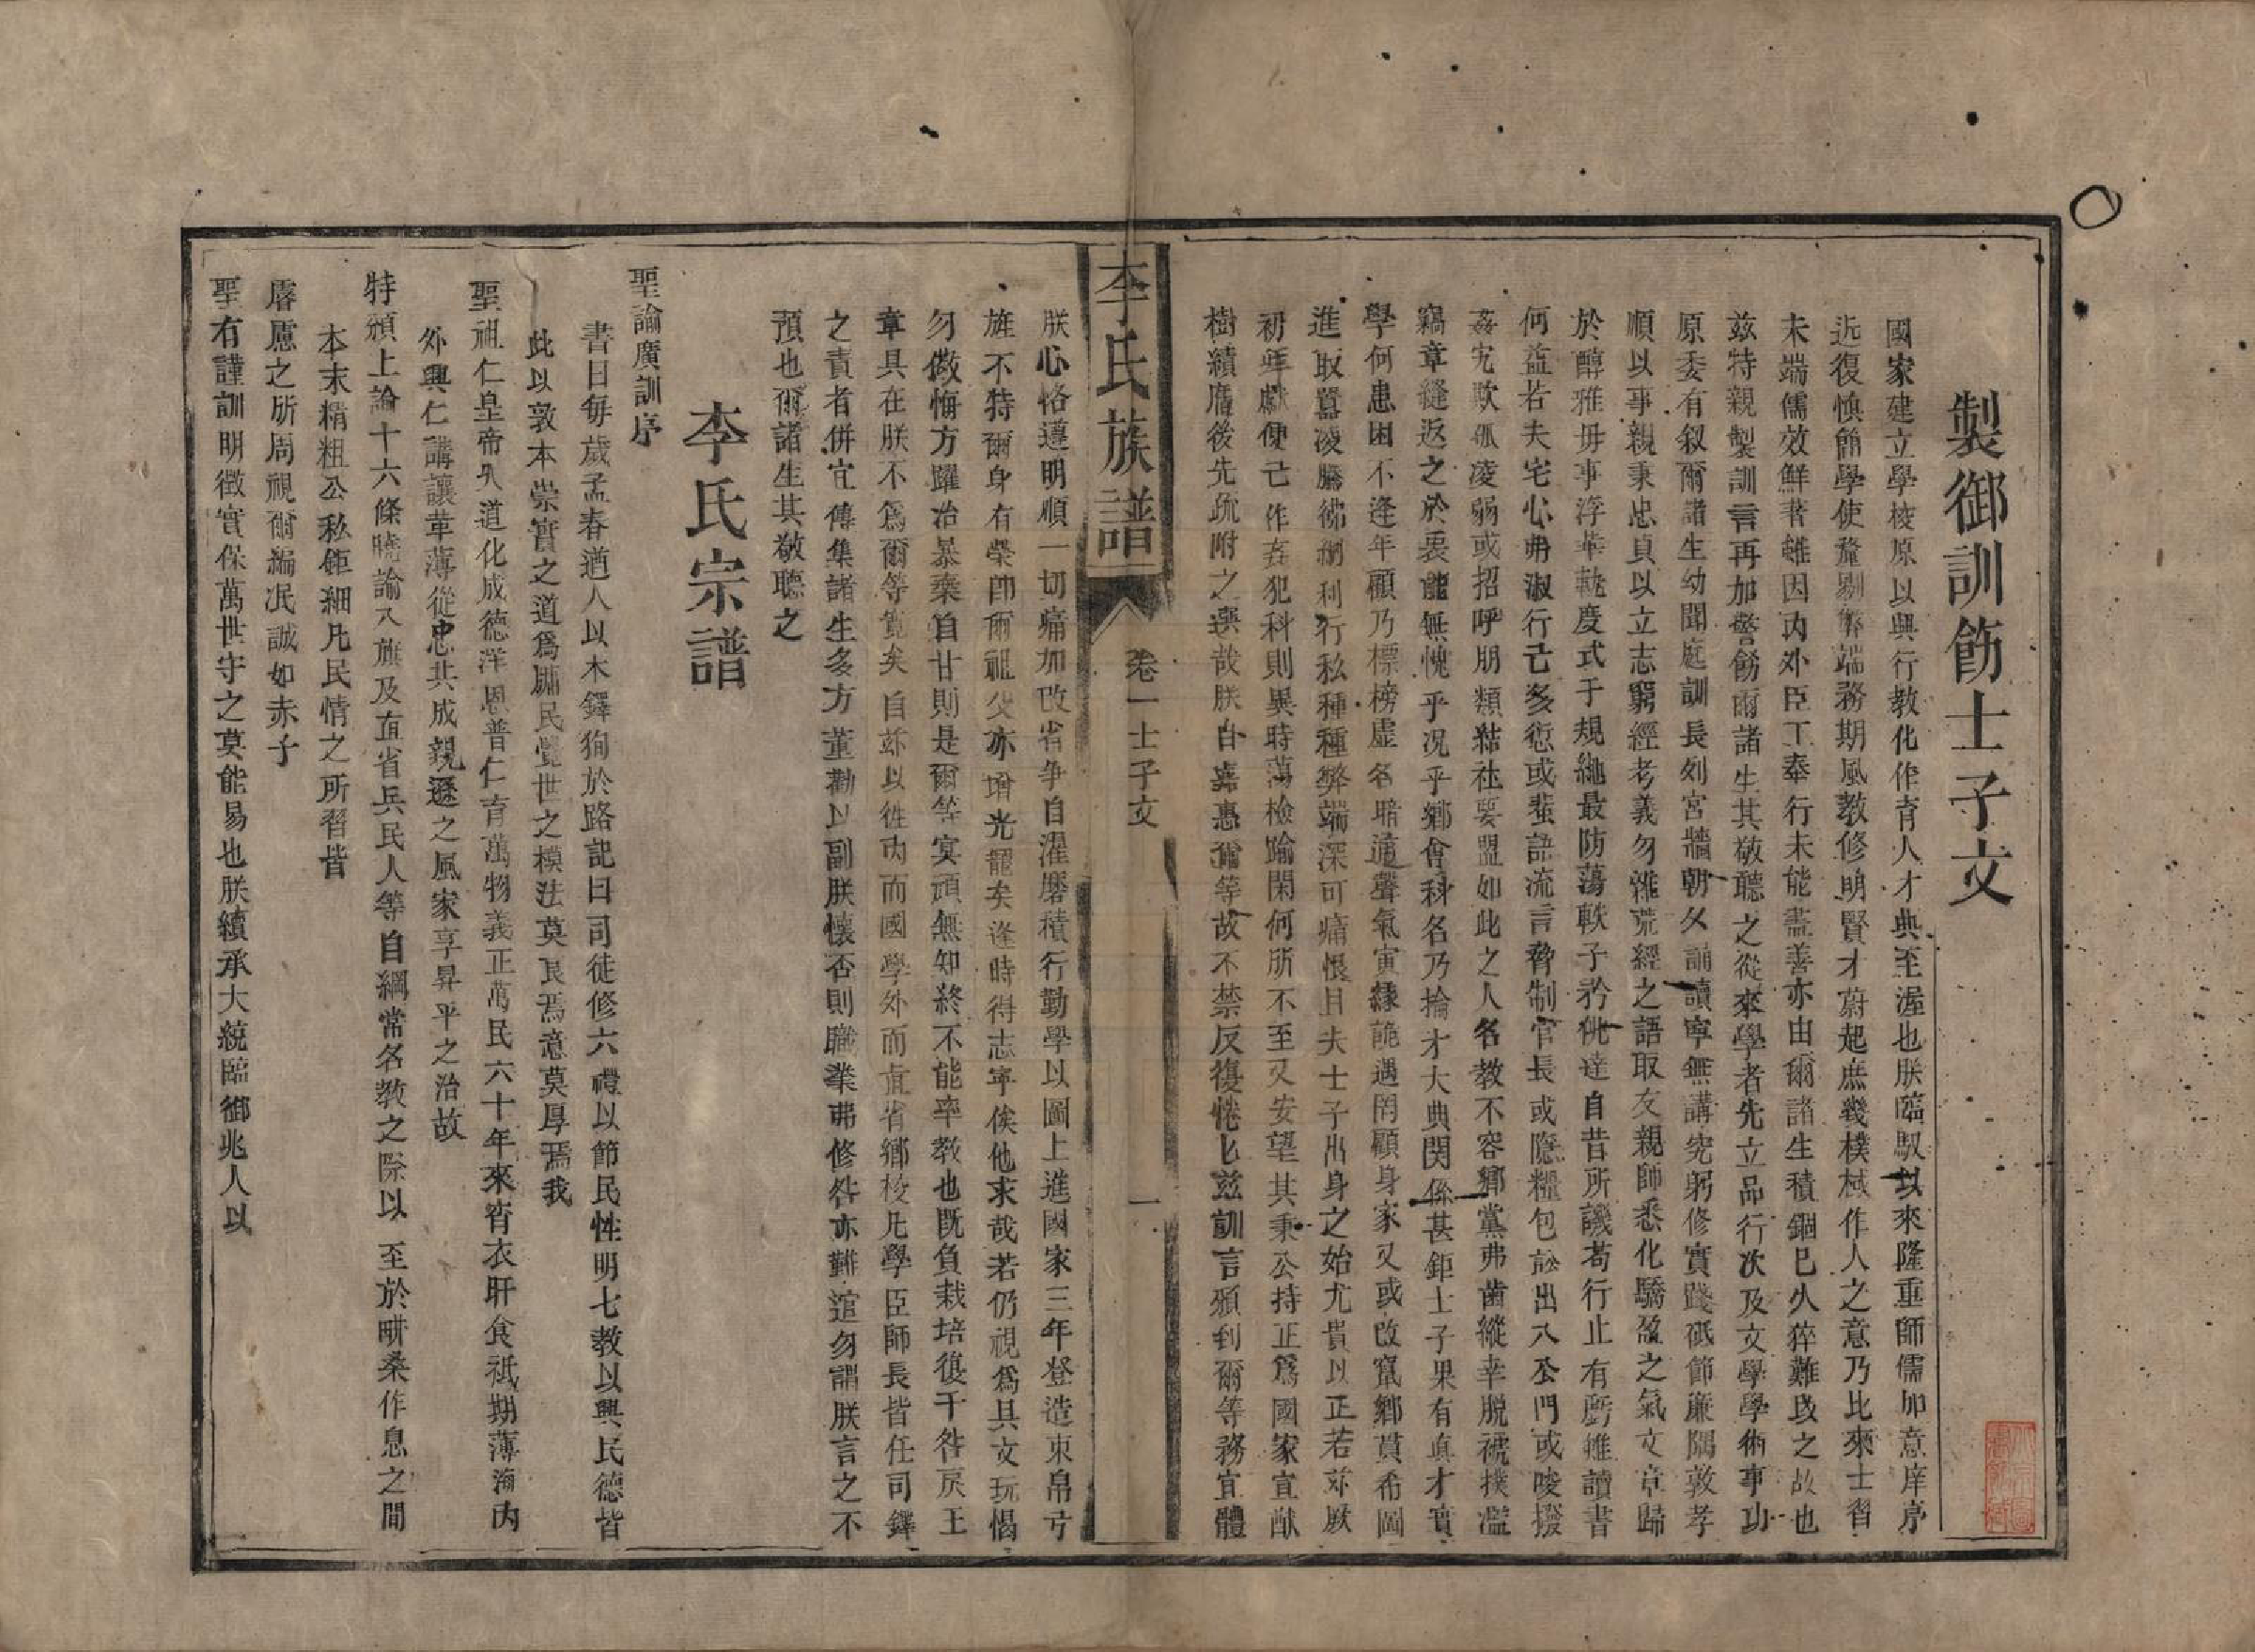 製御訓飭士子文
國家建立學校原以興行教化作育人才典至渥也朕臨馭以來隆重師儒加意庠序
近復慎簡學使釐剔弊端務期風教修明賢才蔚起庶幾樸棫作人之意乃比來士習
未端儒效鮮著雖因内外臣工奉行未能盡善亦由爾諸生積錮已久猝難改之故也
茲特親製訓言再加警飭爾諸生其敬聽之從來學者先立品行次及文學學術事功
原委有叙爾諸生幼聞庭訓長列宮牆朝夂誦讀寕無講究躬修實踐砥節廉隅敦孝
順以事親秉忠貞以立志窮經考義勿雜荒經之語取友親師悉化驕盈之氣文章歸
於醇雅毋事浮華軌度式于規繩最防蕩軼子衿佻達自昔所譏苟行止有虧雖讀書
何益若夫宅心弗淑行己多愆或蜚語流言脅制官長或隱糧包訟出入公門或唆撥
姦宄欺孤凌弱或招呼朋類結社要盟如此之人名教不容鄉黨弗齒縱幸脱褫撲濫
竊章縫返之於衷能無愧乎况乎鄉會科名乃掄才大典関係甚鉅士子果有真才實
學何患困不逢年顧乃標榜虛名暗通聲氣寅緣詭遇罔顧身家又或改竄鄉貫希圖
進取囂凌騰沸網利行私種種弊端深可痛恨且夫士子出身之始尤貴以正若玆厥
初拜獻便已作姦犯科則異時蕩檢踰閑何所不至又安望其秉公持正爲國家宣猷
樹績膺後先疏附之選哉朕自嘉惠爾等故不禁反復惓匕兹訓言頒到爾等務宜體
李氏族譜
卷一士子文
一
朕心恪遵明順一切痛加改省争自濯磨積行勤學以圖上進國家三年登造束帛亏
旌不特爾身有榮卽爾祖父亦增光寵矣逢時得志寕俟他求哉若仍視爲具文玩愒
勿儆悔方躍冶暴棄自甘則是爾等冥頑無知終不能率教也旣負栽培復干咎戾王
章具在朕不爲爾等寛矣自玆以徃内而國學外而直省鄉校凡學臣師長皆任司鐸
之責者併宜傳集諸生多方董勸以副朕懷否則職業弗修咎亦難逭勿謂朕言之不
預也爾諸生其敬聽之
李氏宗譜
聖諭廣訓序
書曰每歲孟春遒人以木鐸狥於路記曰司徒修六禮以節民性明七教以興民德皆
此以敦本崇實之道爲牖民覺世之模法莫良焉意莫厚焉我
聖祖仁皇帝久道化成德洋恩普仁育萬物義正萬民六十年來宵衣旰食祇期薄海内
外興仁講讓革薄從忠共成親遜之風家享昇平之治故
特頒上諭十六條曉諭八旗及直省兵民人等自綱常名教之際以至於畊桑作息之間
本末精粗公私鉅細凡民情之所習皆
睿慮之所周視爾編氓誠如赤子
聖有謹訓明徵實保萬世守之莫能易也朕續承大統臨御兆人以